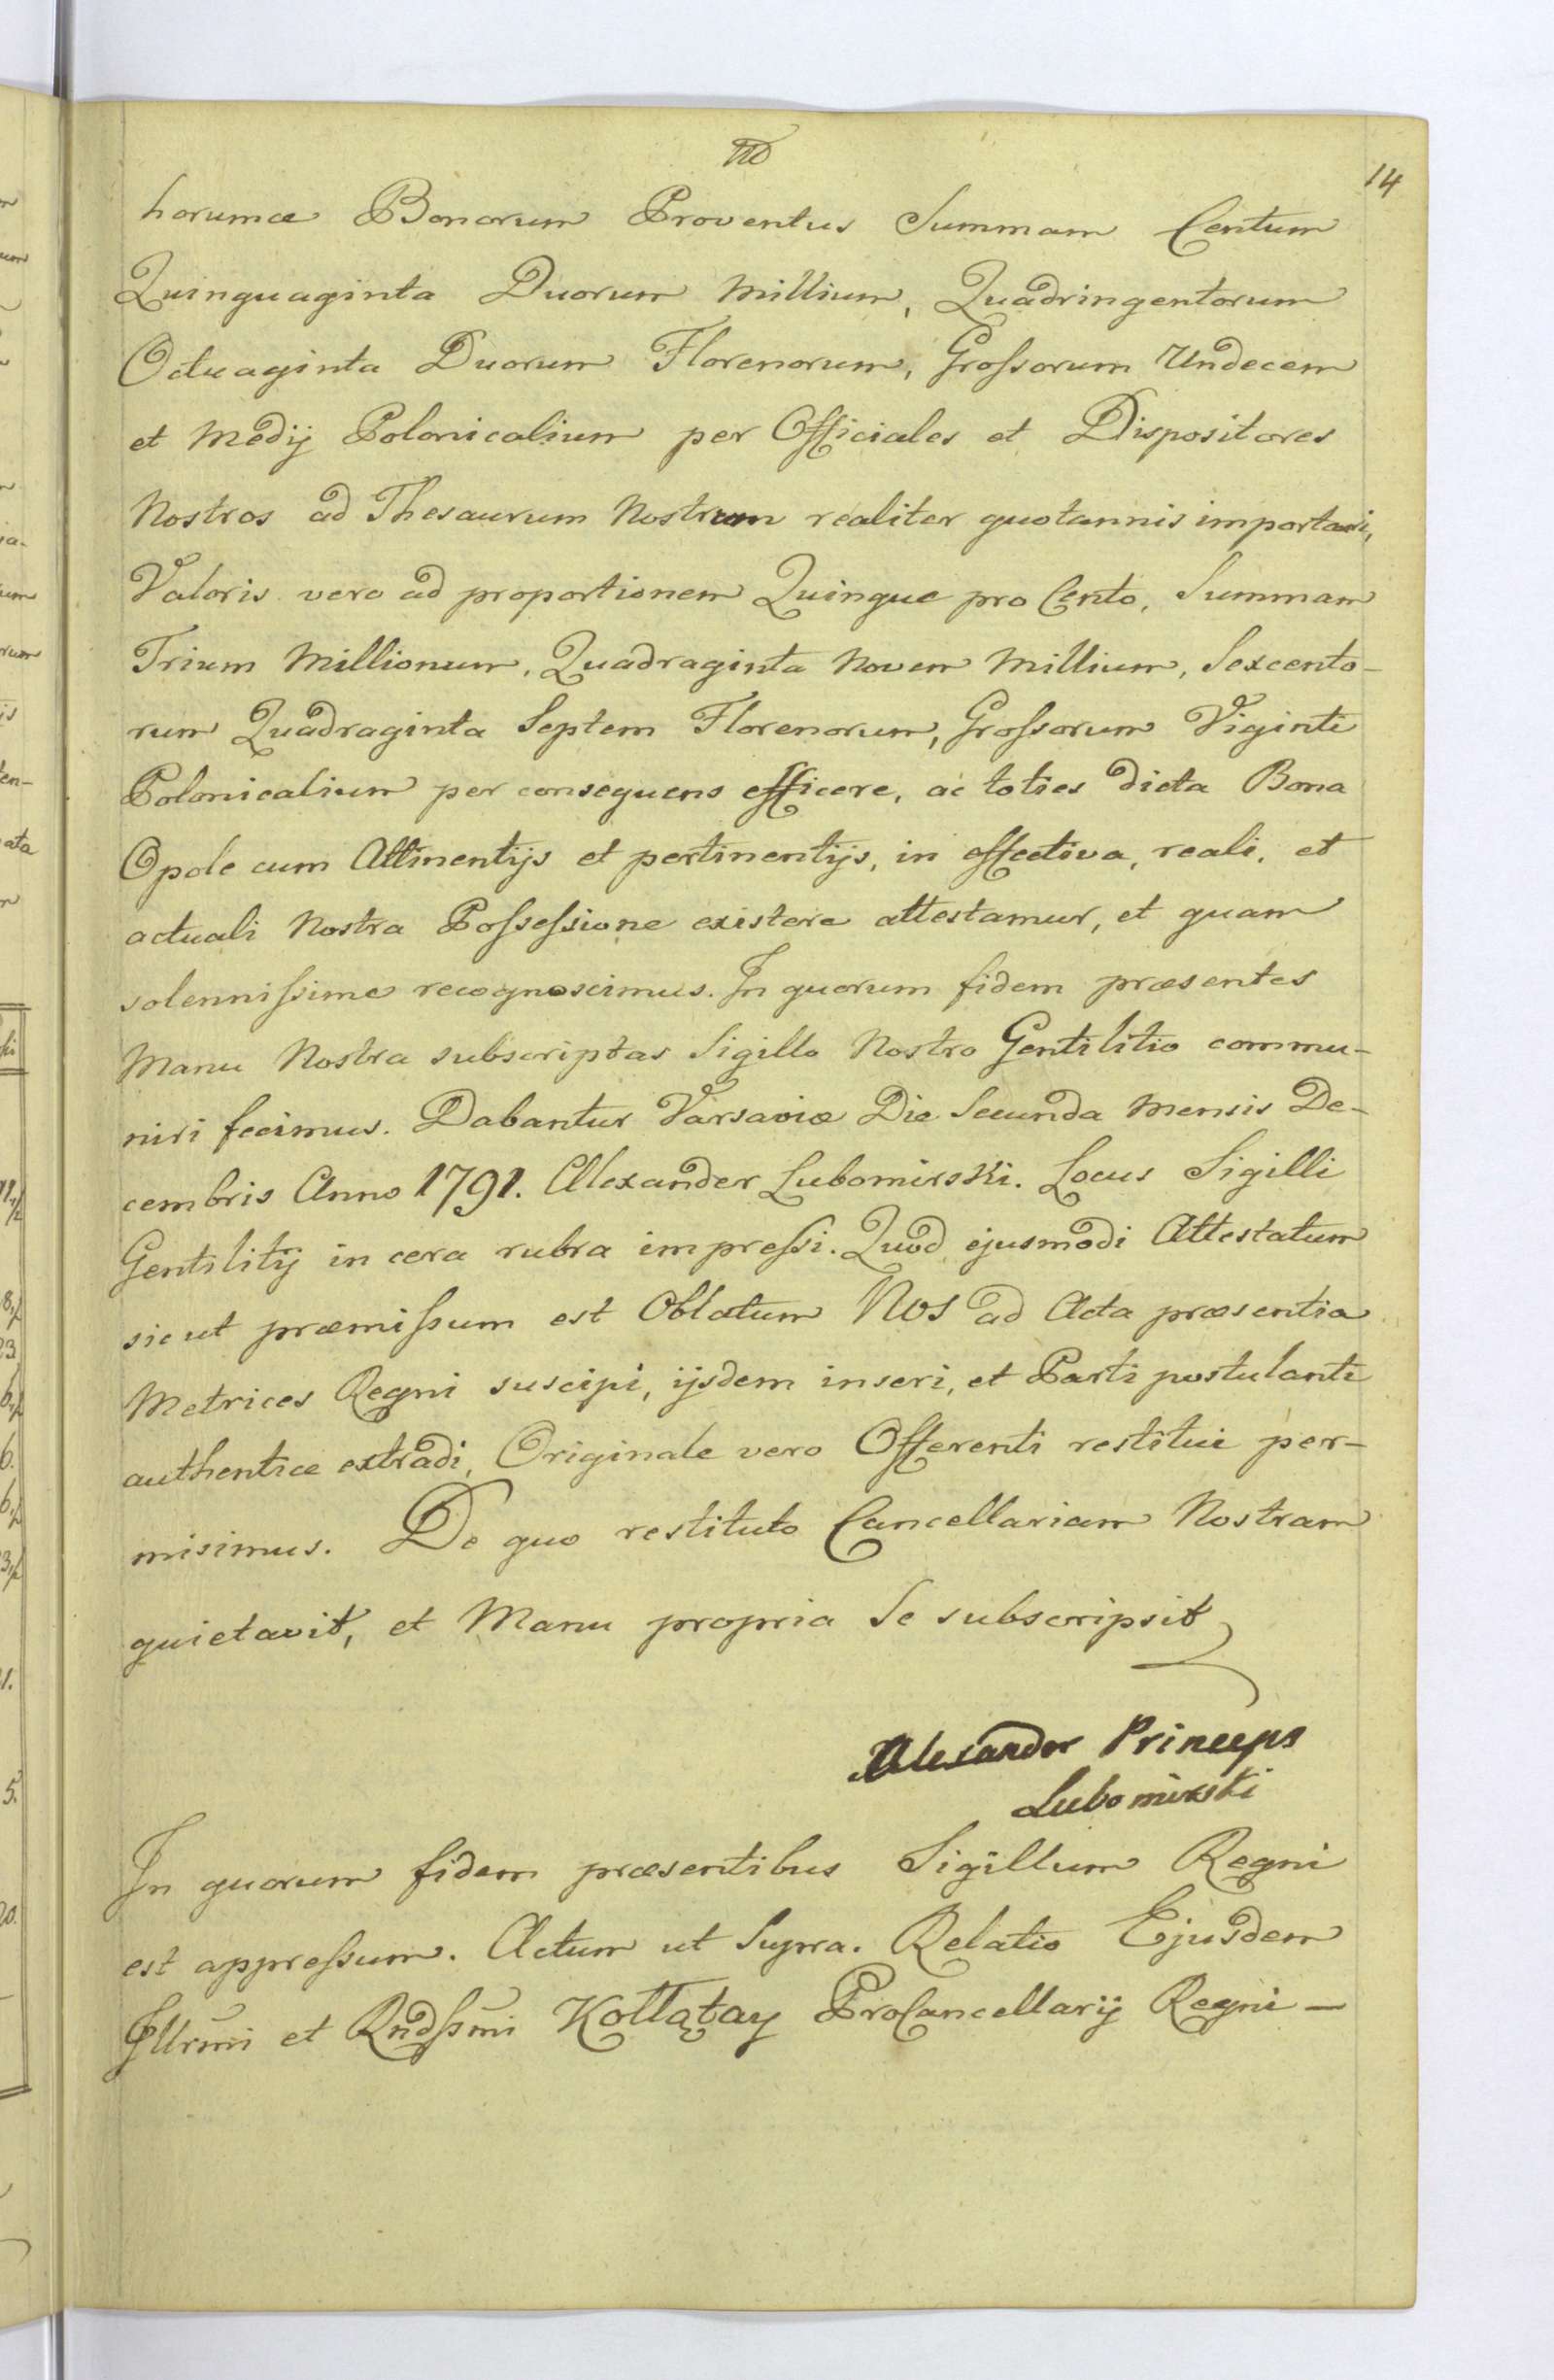 14
horumce Bonorum Proventus Summam Centum
Quinquaginta Duorum Millium, Quadringentorum
Octuaginta Duorum Florenorum, Grossorum Undecem
et Medij Polonicalium per Officiales et Dispositores
Nostros ad Thesaurum Nostrum realiter quotannis importari,
Valoris vero ad proportionem Quinque pro Cento, Summam
Trium Millionum, Quadraginta Novem Millium, Sexcento-
rum Quadraginta Septem Florenorum, Grossorum Viginti
Polonicalium per consequens efficere, ac toties dicta Bona
Opole cum Attinentijs et pertinentijs, in effectiva, reali, et
actuali Nostra Possessione existere attestamur, et quam
solennissime recognoscimus. In quorum fidem præsentes
Manu Nostra subscriptas Sigillo Nostro Gentilitio commu-
niri fecimus. Dabantur Varsaviæ Die Secunda Mensis De-
cembris Anno 1791. Alexander Lubomirski. Locus Sigilli
Gentilitij in cera rubra impressi. Quod ejusmodi Attestatum
sicut præmissum est Oblatum NOS ad Acta præsentia
Metrices Regni suscipi, ijsdem inseri, et Parti postulanti
authentice extradi, Originale vero Offerenti restitui per-
misimus. De quo restituto Cancellariam Nostram
quietavit, et Manu propria Se subscripsit
Alexander Princeps
Lubomirski
In quorum fidem præsentibus Sigillum Regni
est appressum. Actum ut Supra. Relatio Ejusdem
Illrmi et Rndssmi Kołłątay ProCancellarij Regni —